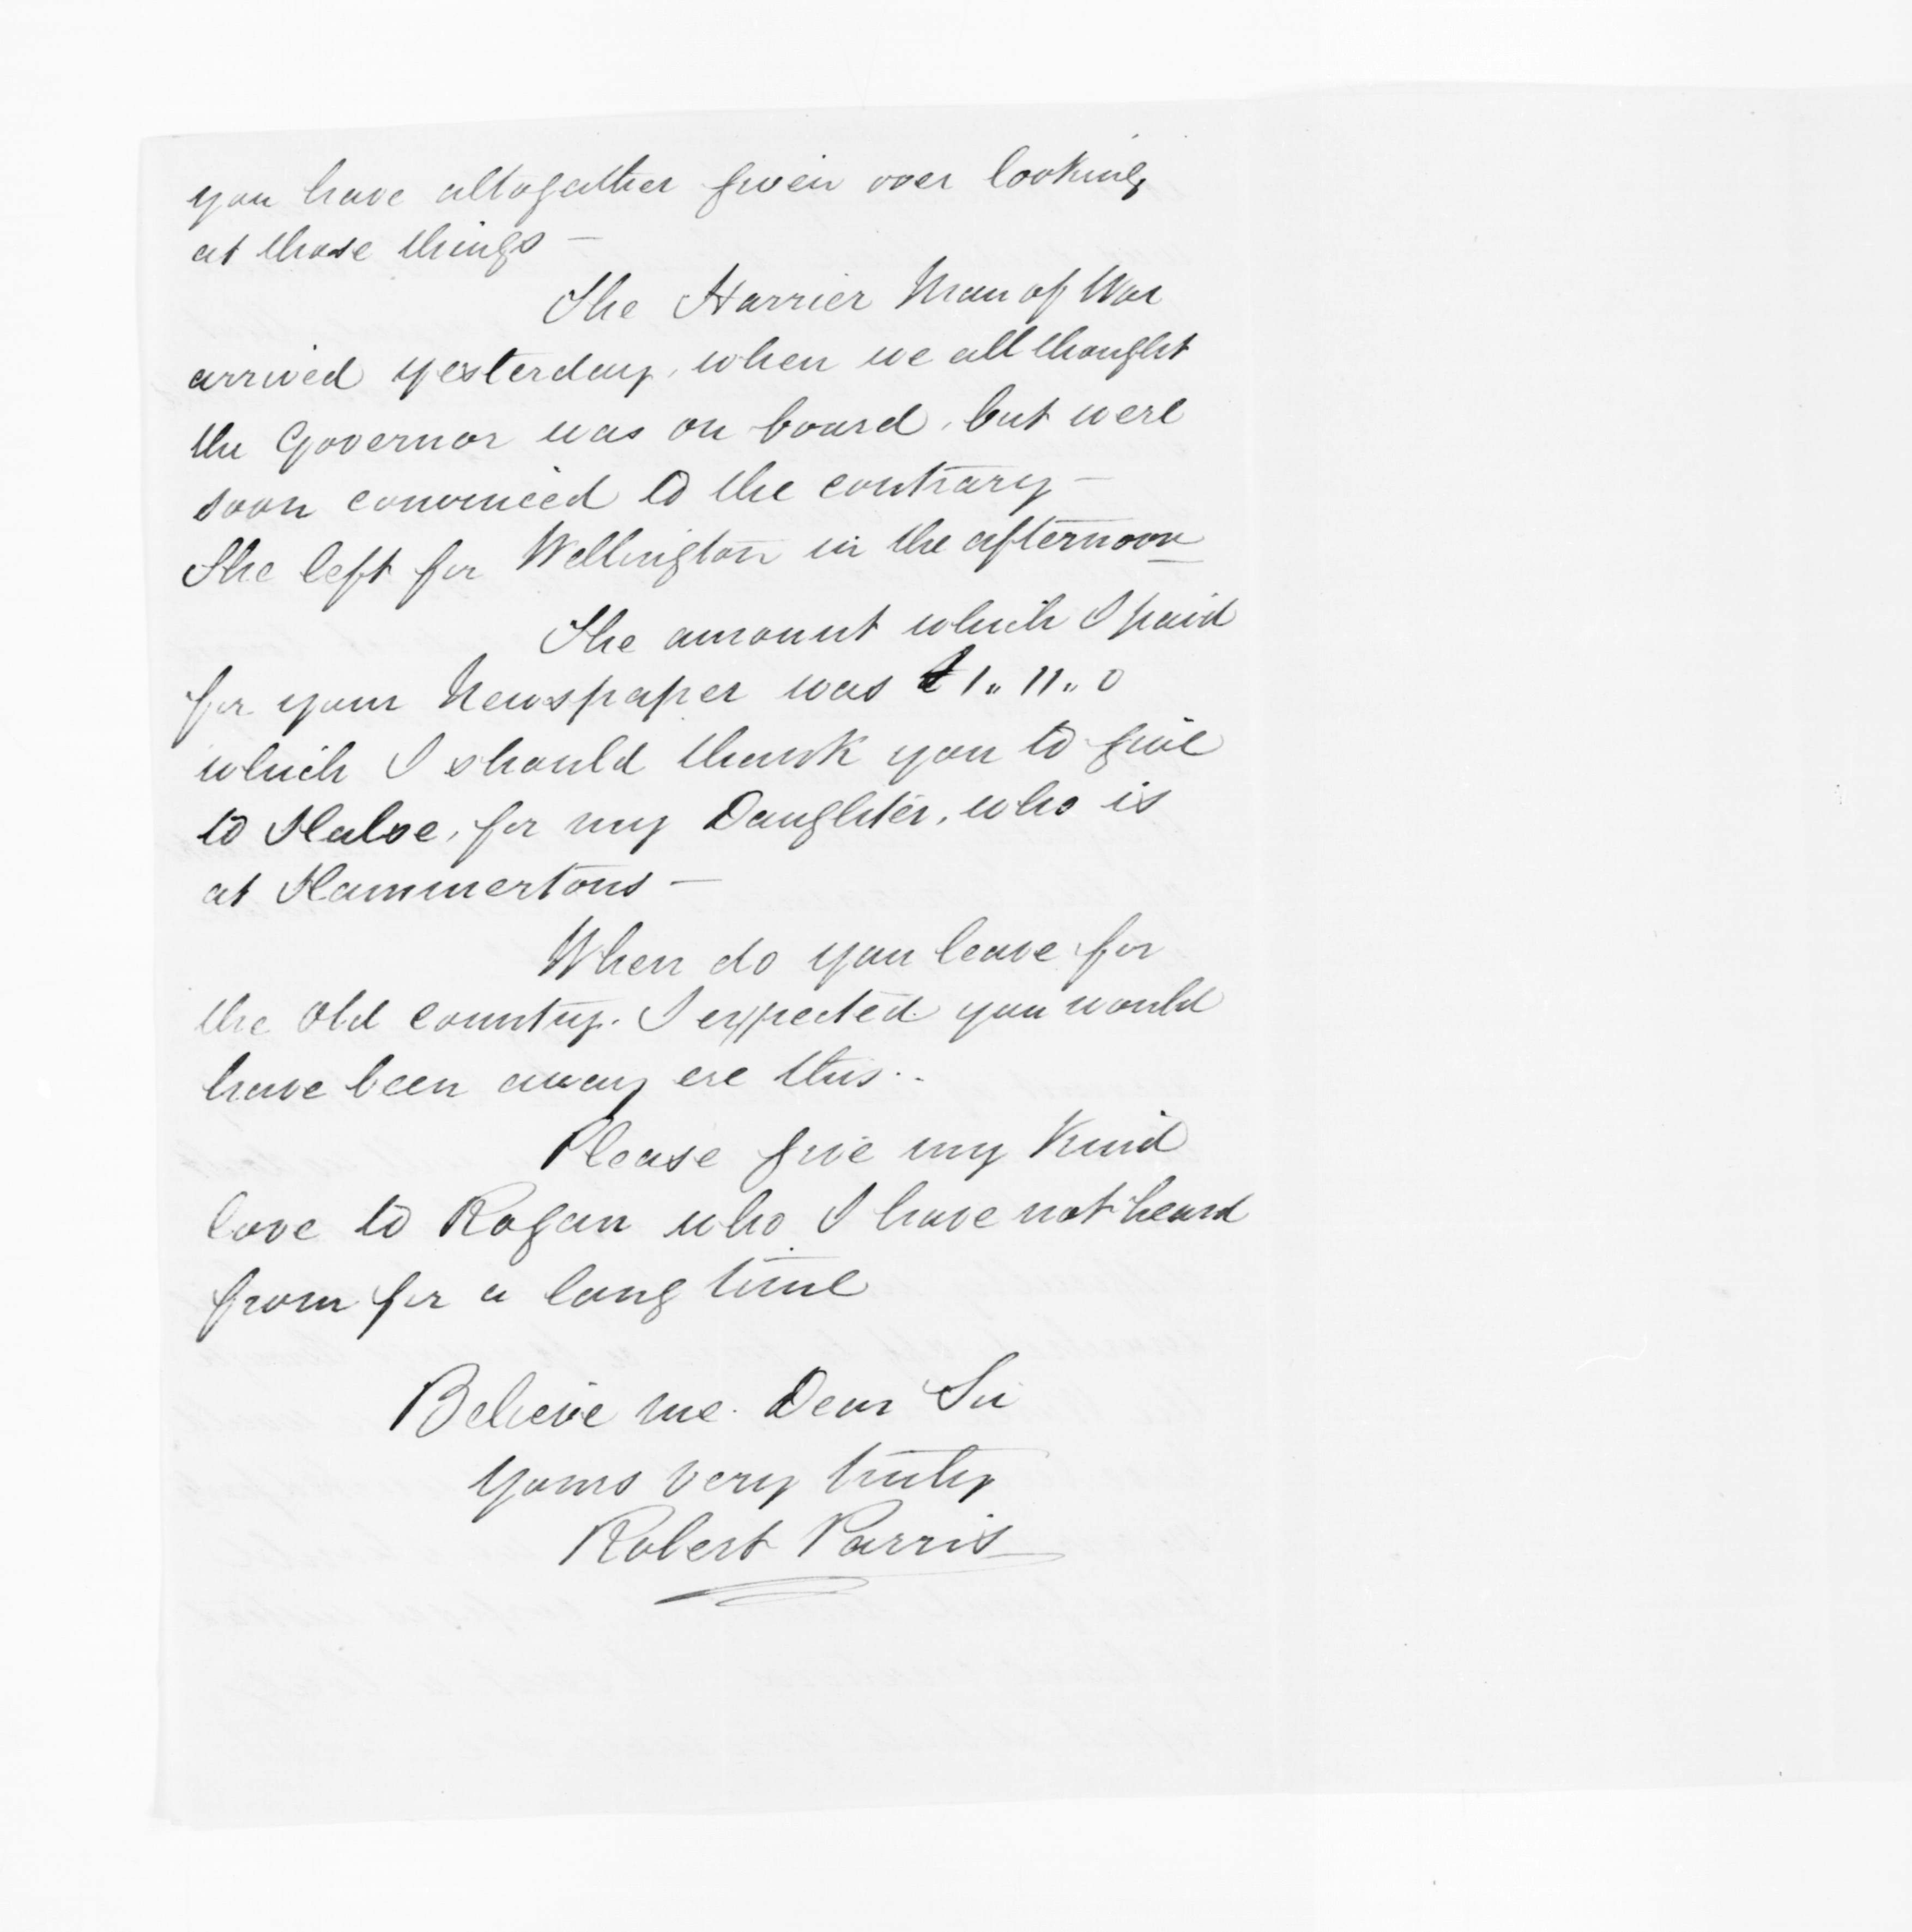 you have altogether given over looking
at those things —
The Harrier Man of War
arrived yesterday, when we all thought
the Governor was on board, but were
soon convinced to the contrary —
She left for Wellington in the afternoon
The amount which I paid
for your Newspaper was £1.. 11.. 0
which I should thank you to give
to Halse, for my Daughter, who is
at Hammertons —
When do you leave for
the Old country. I expected you would
have been away ere this..
Please give my kind
love to Rogan who I have not heard
from for a long time
Believe me. Dear Sir
Yours very truly
Robert Parris